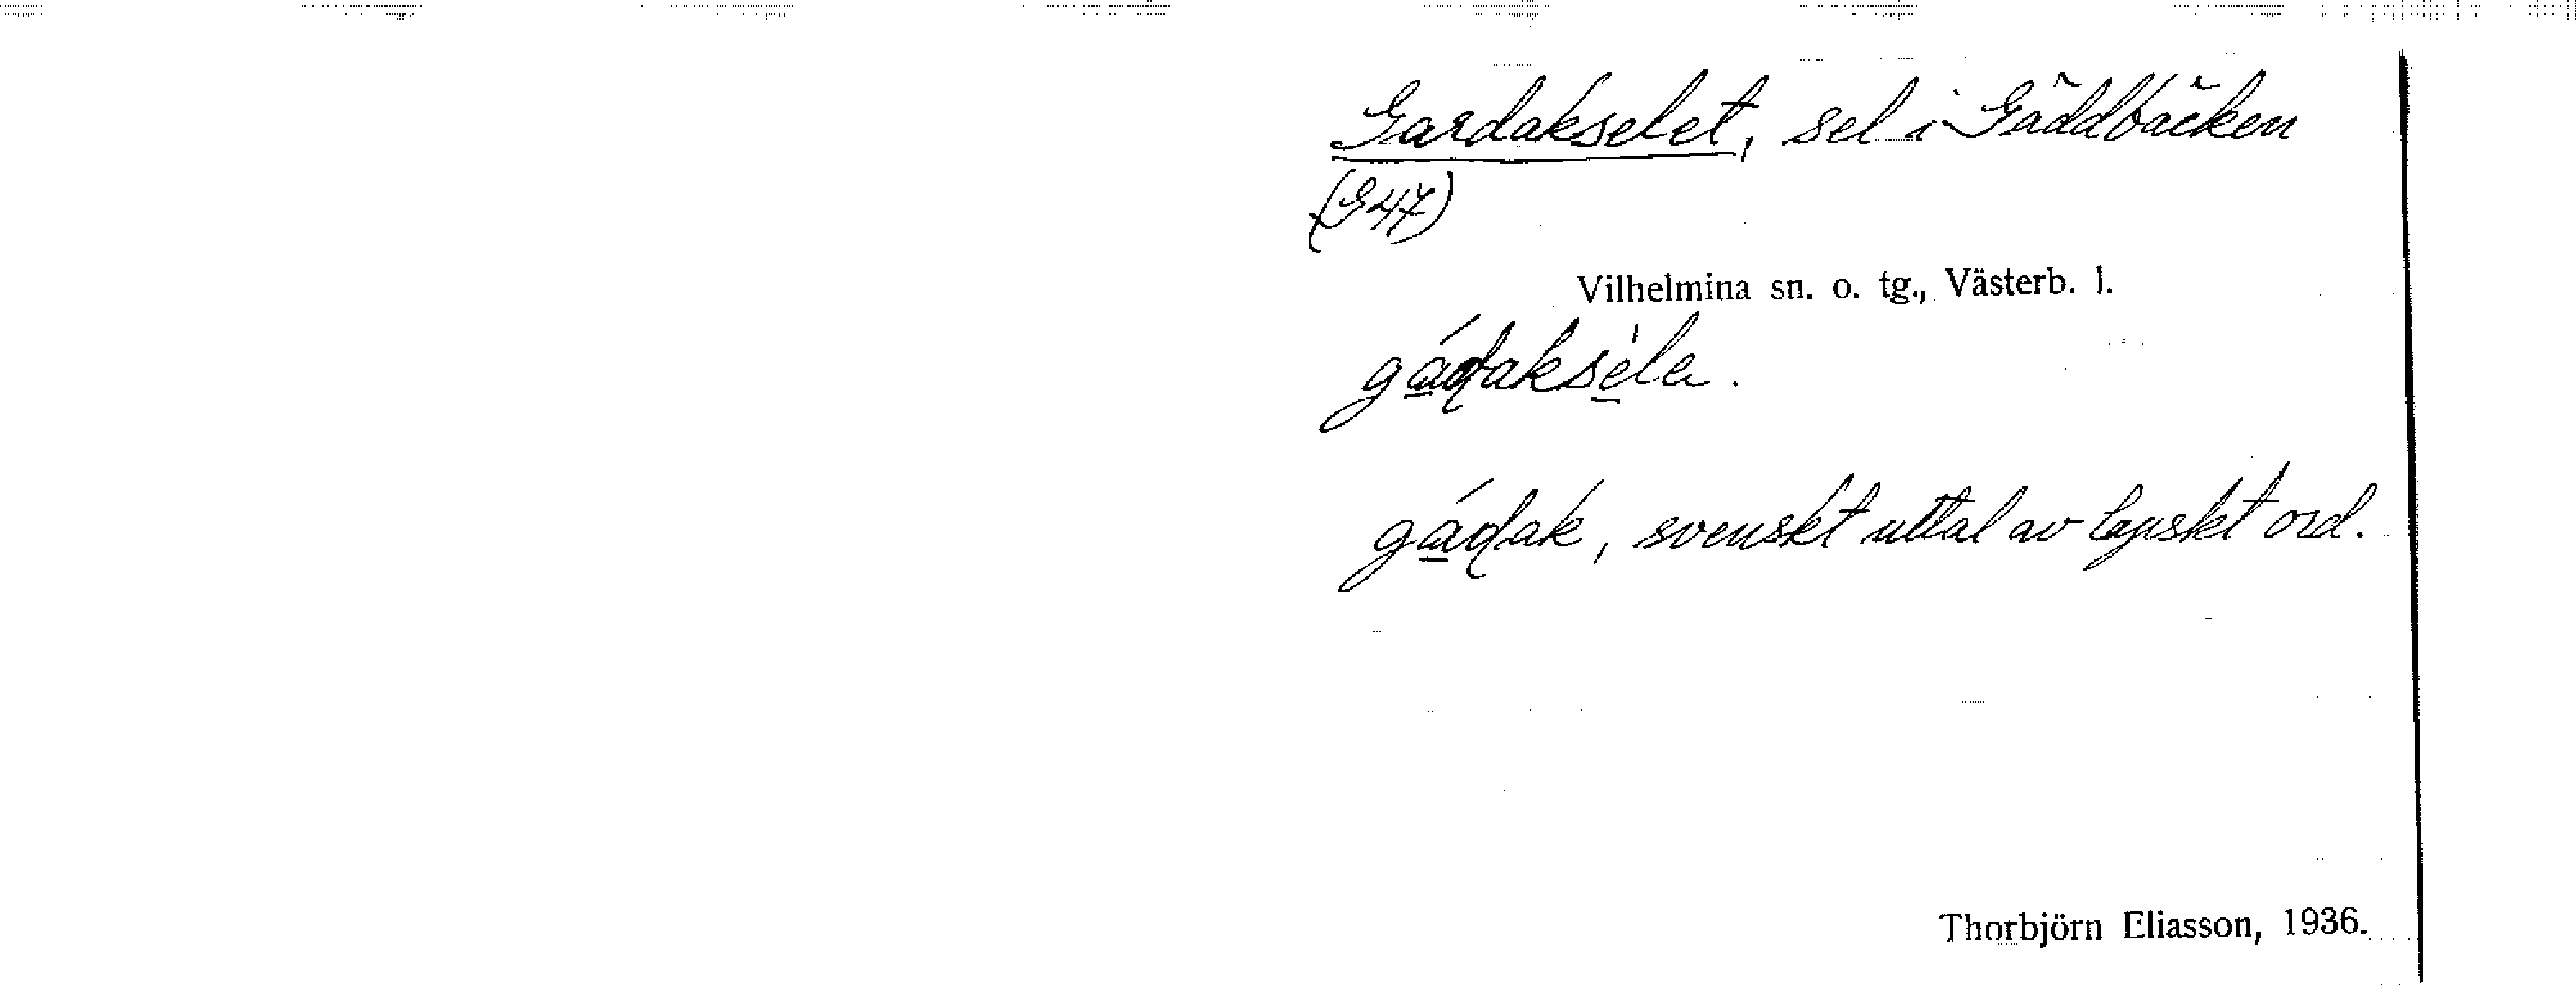 Gardakselet, sel i Gäddbäcken
(G47)
Vilhelmina sn. o. tg., Västerb. l.
gá̱ɖaksè̱la.
gá̱ɖak, svenskt uttal av lapskt ord.
Thorbjörn Eliasson, 1936.